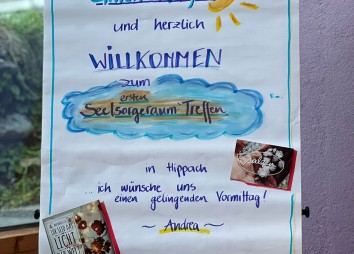 und herzlich
WILLKOMMEN
zum
ersten
Seelsorgeraum Treffen
in Hippach
...ich wünsche uns
einen gelingenden Vormittag!
~ Andrea ~
LICHT